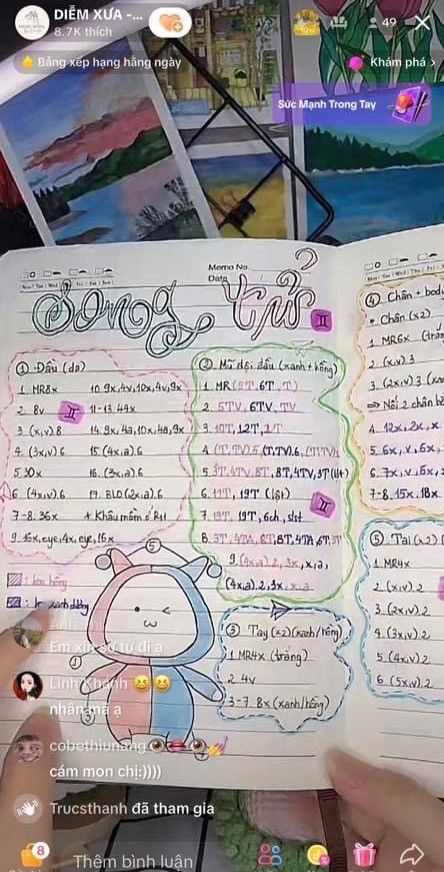 DIỄM XƯA -...
8.7K thích
49
Bảng xếp hạng hằng ngày
Khám phá >
Sức Mạnh Trong Tay
Memo No.
Date
Song tử
II
① Đầu (da)
1 MR8x
2 8V
3 (x,v).8
4 (3x,v) 6
5 30x
6 (4x,v).6
7-8. 36x
9 15x, eye, 4x, eye, 16x
10 9x,4v,10x,4v,9x
11-13. 44x
14. 9x,4a,10x,4a,9x
15 (4x,a).6
16. (3x,a).6
17. BLO (2x,a).6
+ Khâu mồm ở
② Mũ đội đầu (xanh + hồng)
1 MR (5T, 6T, T)
2. 5TV, 6TV, TV
3. 10T, 12T, 2T
4. (T,TV).5, (T,TV).6, (T,TV)
5 3T,4TV,8T, 8T,4TV,3T
6. 19T, 19T (lật)
7. 19T, 19T, 6ch, slst
8. 3T,4TA,8T,8T,4TA,6T,3T
9. (4x,a).2, 3x, x, a,
(4x,a).2, 3x, x, a
③ Tay (x2) (xanh/hồng)
1 MR4x (trắng)
2 4v
3-7. 8x (xanh/hồng)
: len hồng
: xanh dương
⑤
①
③
④ Chân + body
* Chân (x2)
1 MR6x (trắn
2 (x,v).3
3. (2x,v) 3
=> Nối 2 chân
4. 12x, 2x, x
5. 6x, v, 6x,
6. 7x, v, 6x,
7-8. 15x. 18x
⑤ Tai (x2)
1 MR4x
2 (x,v).2
3 (2x,v).2
4. (3x,v).2
5 (4x,v).2
6 (5x,v).2
Em xin sơ từ đi ạ
Linh Khánh
nhân mã ạ
cobethiunang
cám mon chị:))))
Trucsthanh đã tham gia
8
Thêm bình luận